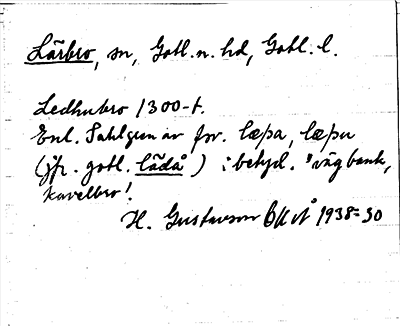 Lärbro, sn, Gotl. n. hd, Gotl. l.
Ledhubro 1300-t.
Enl. Sahlgren av fsv. læþa, læþu
(jfr. gotl. lädå) i betyd. "vägbank,
kavelbro".
H. Gustavson 1938: 30